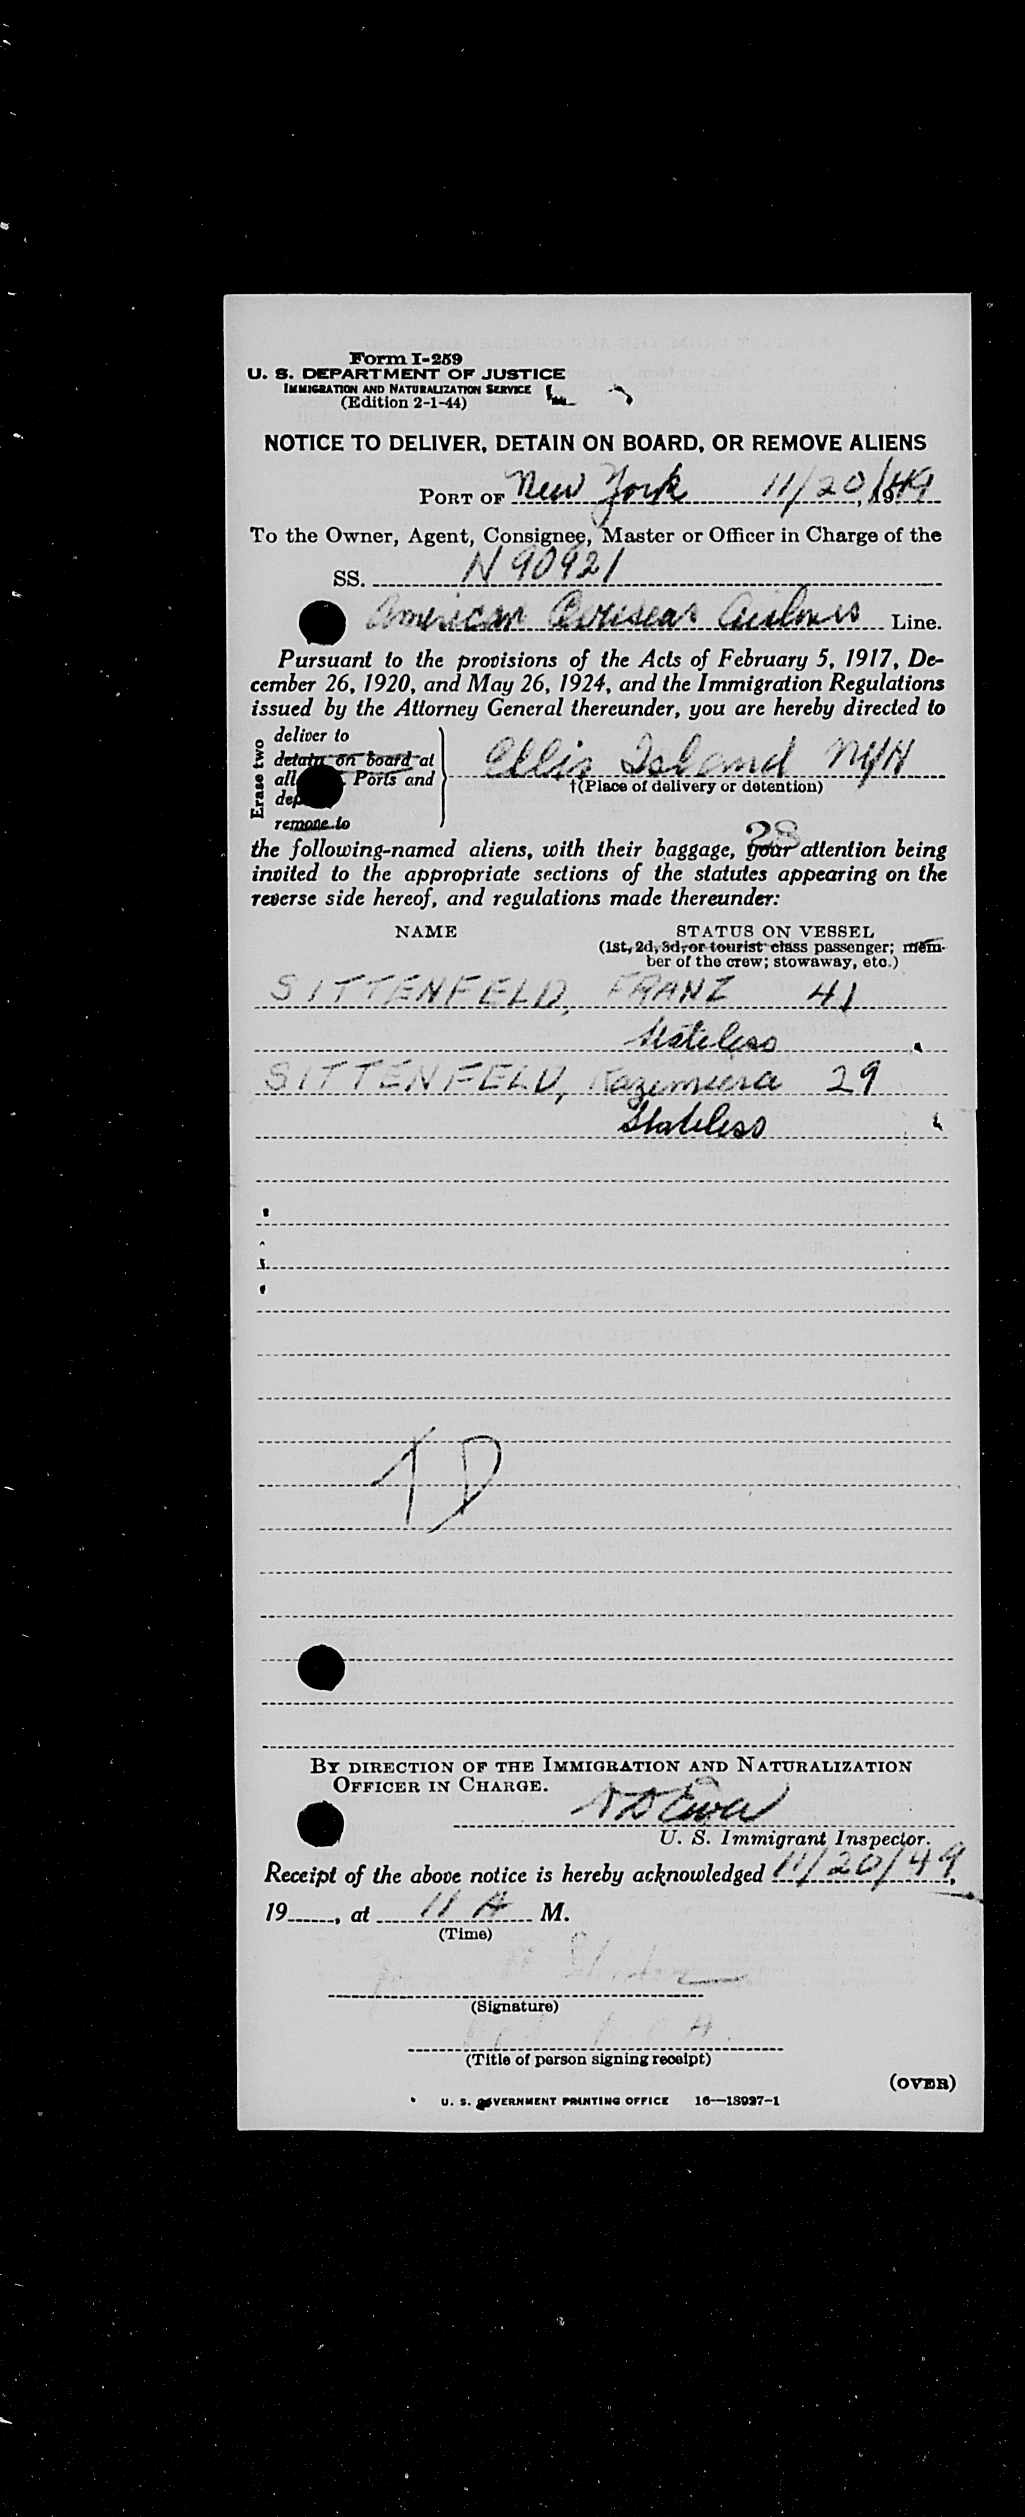 Form I-259
U. S. DEPARTMENT OF JUSTICE
IMMIGRATION AND NATURALIZATION SERVICE
(Edition 2-1-44)
NOTICE TO DELIVER, DETAIN ON BOARD, OR REMOVE ALIENS
PORT OF New York 11/20/1949
To the Owner, Agent, Consignee, Master or Officer in Charge of the
SS. N 90921
American Overseas Airlines Line.
Pursuant to the provisions of the Acts of February 5, 1917, De-
cember 26, 1920, and May 26, 1924, and the Immigration Regulations
issued by the Attorney General thereunder, you are hereby directed to
Erase two
deliver to
detain on board at
all Ports and
remove to
Ellis Island NYH
†(Place of delivery or detention)
28
the following-named aliens, with their baggage, your attention being
invited to the appropriate sections of the statutes appearing on the
reverse side hereof, and regulations made thereunder:
NAME STATUS ON VESSEL
(1st, 2d, 3d, or tourist class passenger; mem-
ber of the crew; stowaway, etc.)
SITTENFELD, FRANZ 41
Stateless
SITTENFELD, Kazimiera 29
Stateless
TD
BY DIRECTION OF THE IMMIGRATION AND NATURALIZATION
OFFICER IN CHARGE.
U. S. Immigrant Inspector.
Receipt of the above notice is hereby acknowledged 11/20/49,
19___, at 11 A M.
(Time)
(Signature)
(Title of person signing receipt)
(OVER)
U. S. GOVERNMENT PRINTING OFFICE 16—18927-1